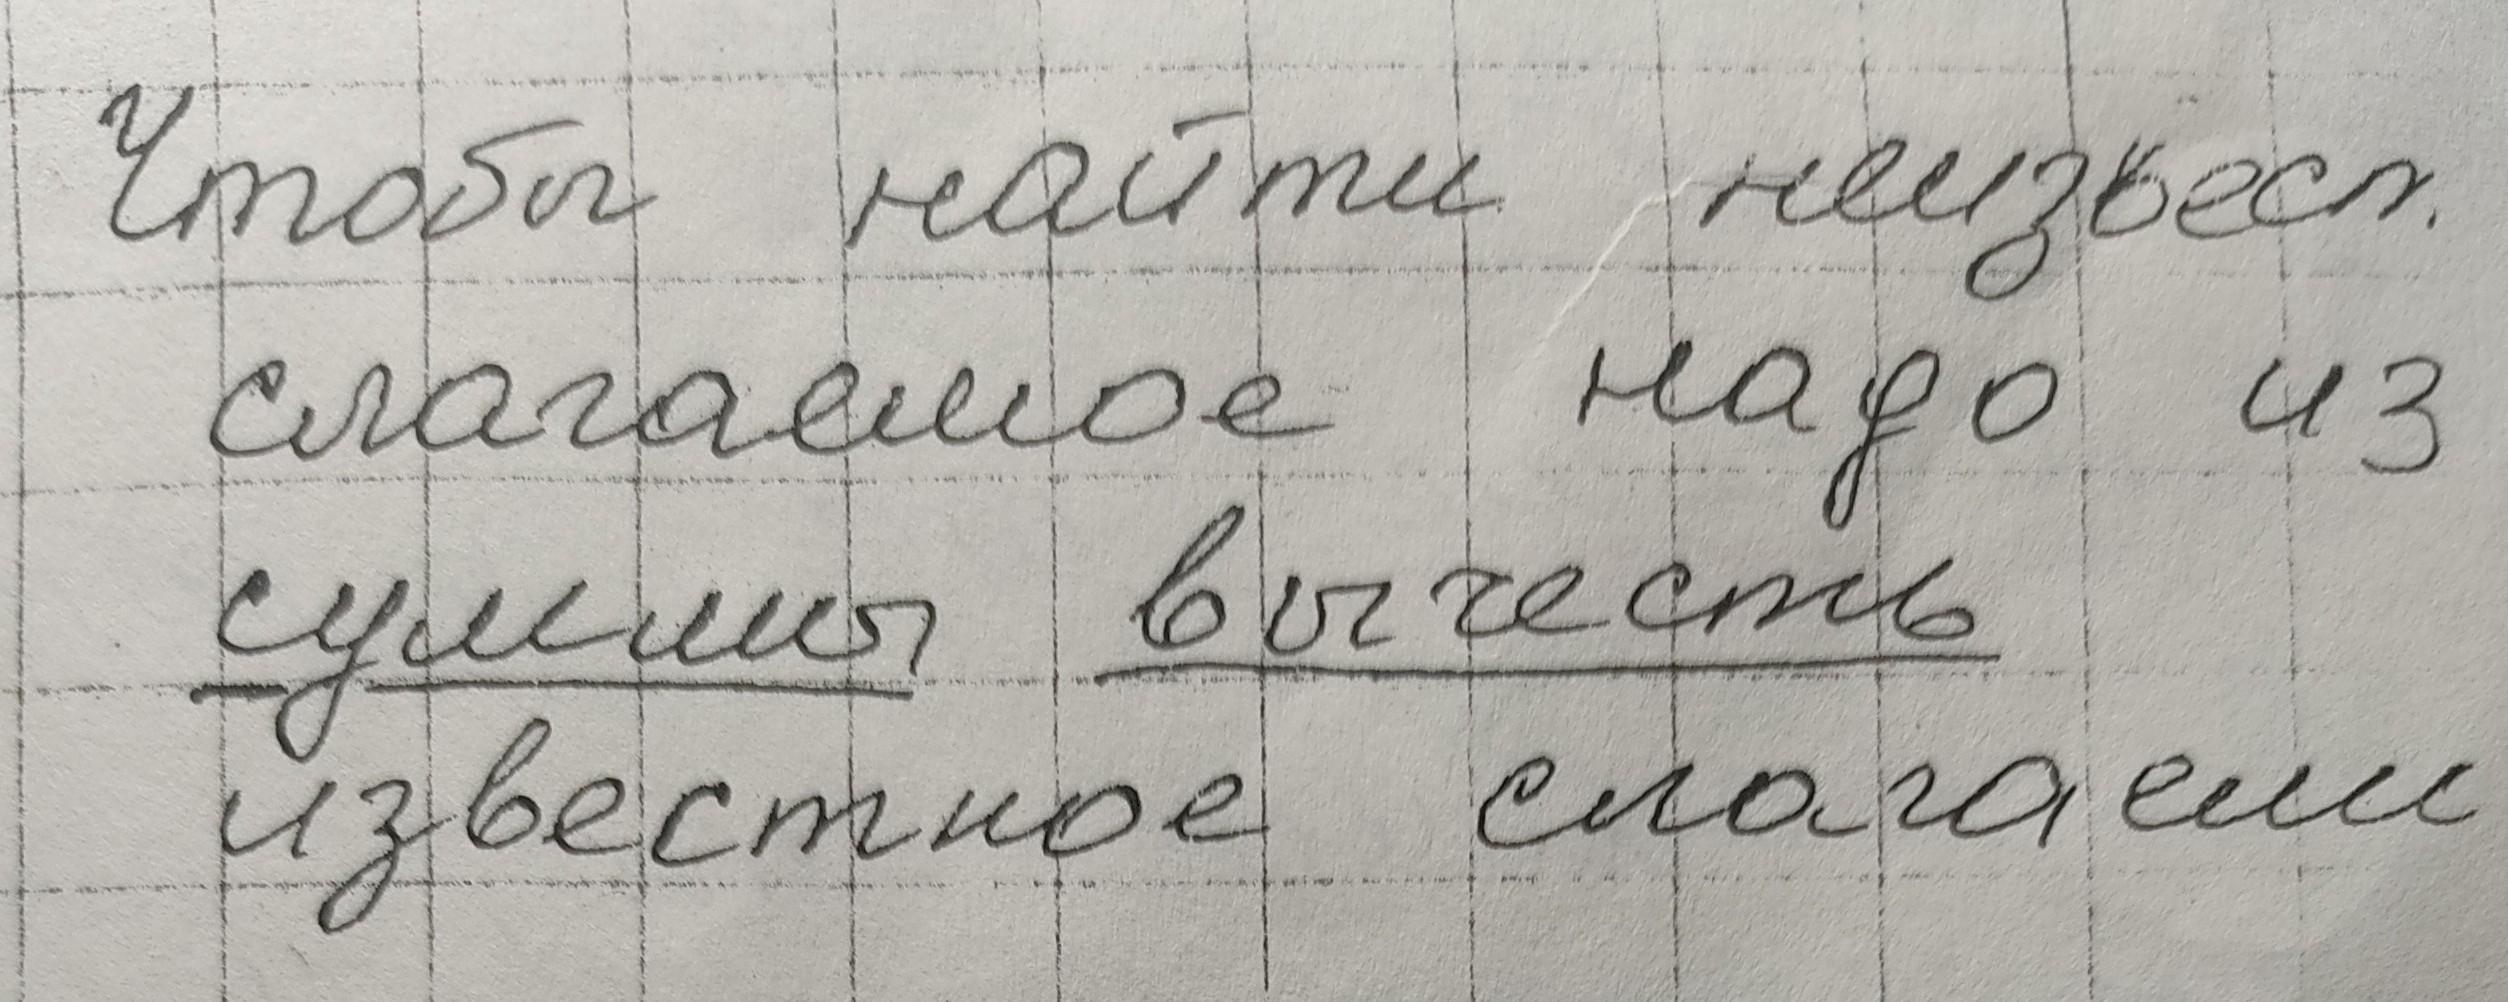 Чтобы найти неизвест.
слагаемое надо из
суммы вычесть
известное слагаем